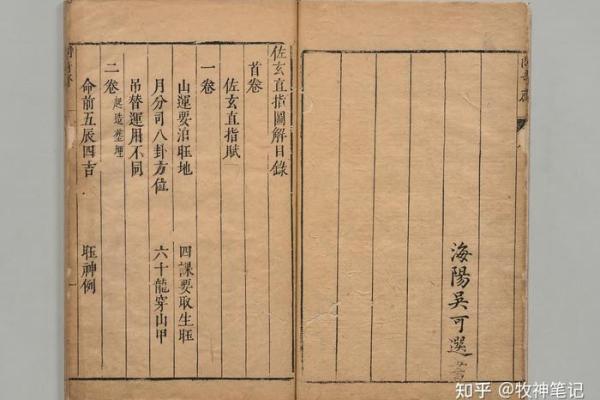 海陽吳可選書
佐玄直指圖解目錄
首卷
佐玄直指賦
一卷
山運要旺地 四課要取生旺
月分司八卦方位 六十龍穿山甲
吊替運用不同
二卷 起造塟埋
命前五辰四吉 旺神例
知乎 @牧神笔记